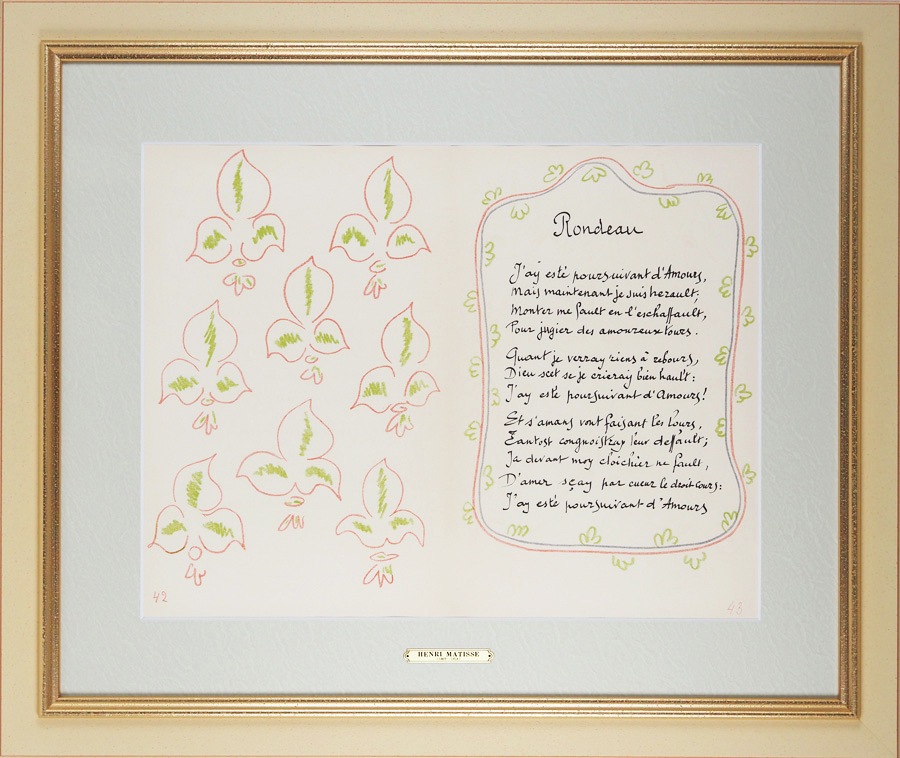 Rondeau
J'ay esté poursuivant d'Amours,
Mais maintenant je suis herault;
Monter me fault en l'eschaffault,
Pour jugier des amoureux tours.
Quant je verray riens à rebours,
Dieu scet se je crieray bien hault:
J'ay esté poursuivant d'Amours!
Et s'amans vont faisant les lours,
Tantost congnoistray leur deffault;
Ja devant moy clochier ne fault,
D'amer sçay par cueur le droit cours:
J'ay esté poursuivant d'Amours
42
43
HENRI MATISSE